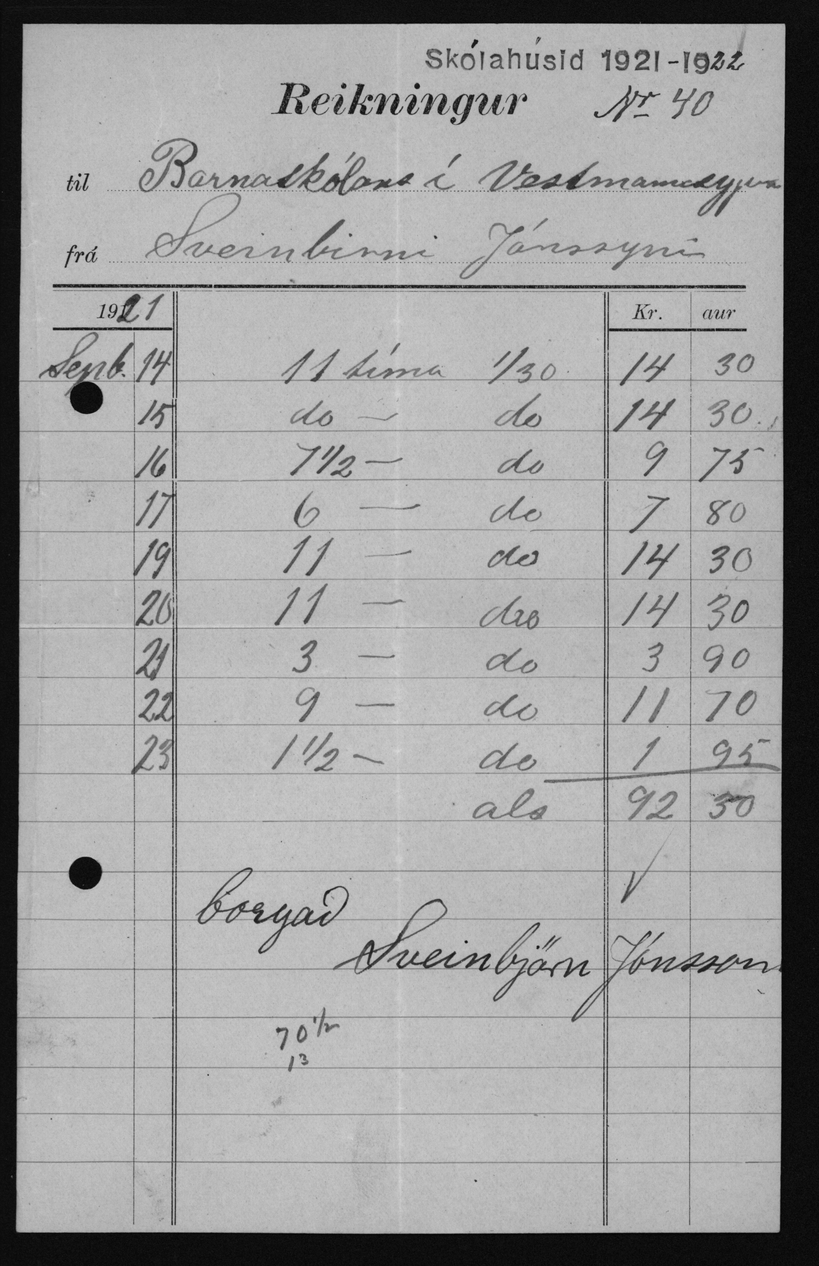 Skólahúsid 1921-1922
Reikningur Nr 40
til Barnaskólans í Vestmannaeyjum
frá Sveinbirni Jónssyni
1921 Kr. aur
Sept. 14 11 tíma 1/30 14 30
15 do — do 14 30
16 7 1/2 — do 9 75
17 6 — do 7 80
19 11 — do 14 30
20 11 — do 14 30
21 3 — do 3 90
22 9 — do 11 70
23 1 1/2 — do 1 95
als 92 30
borgað
Sveinbjörn Jónsson
70 1/2
13